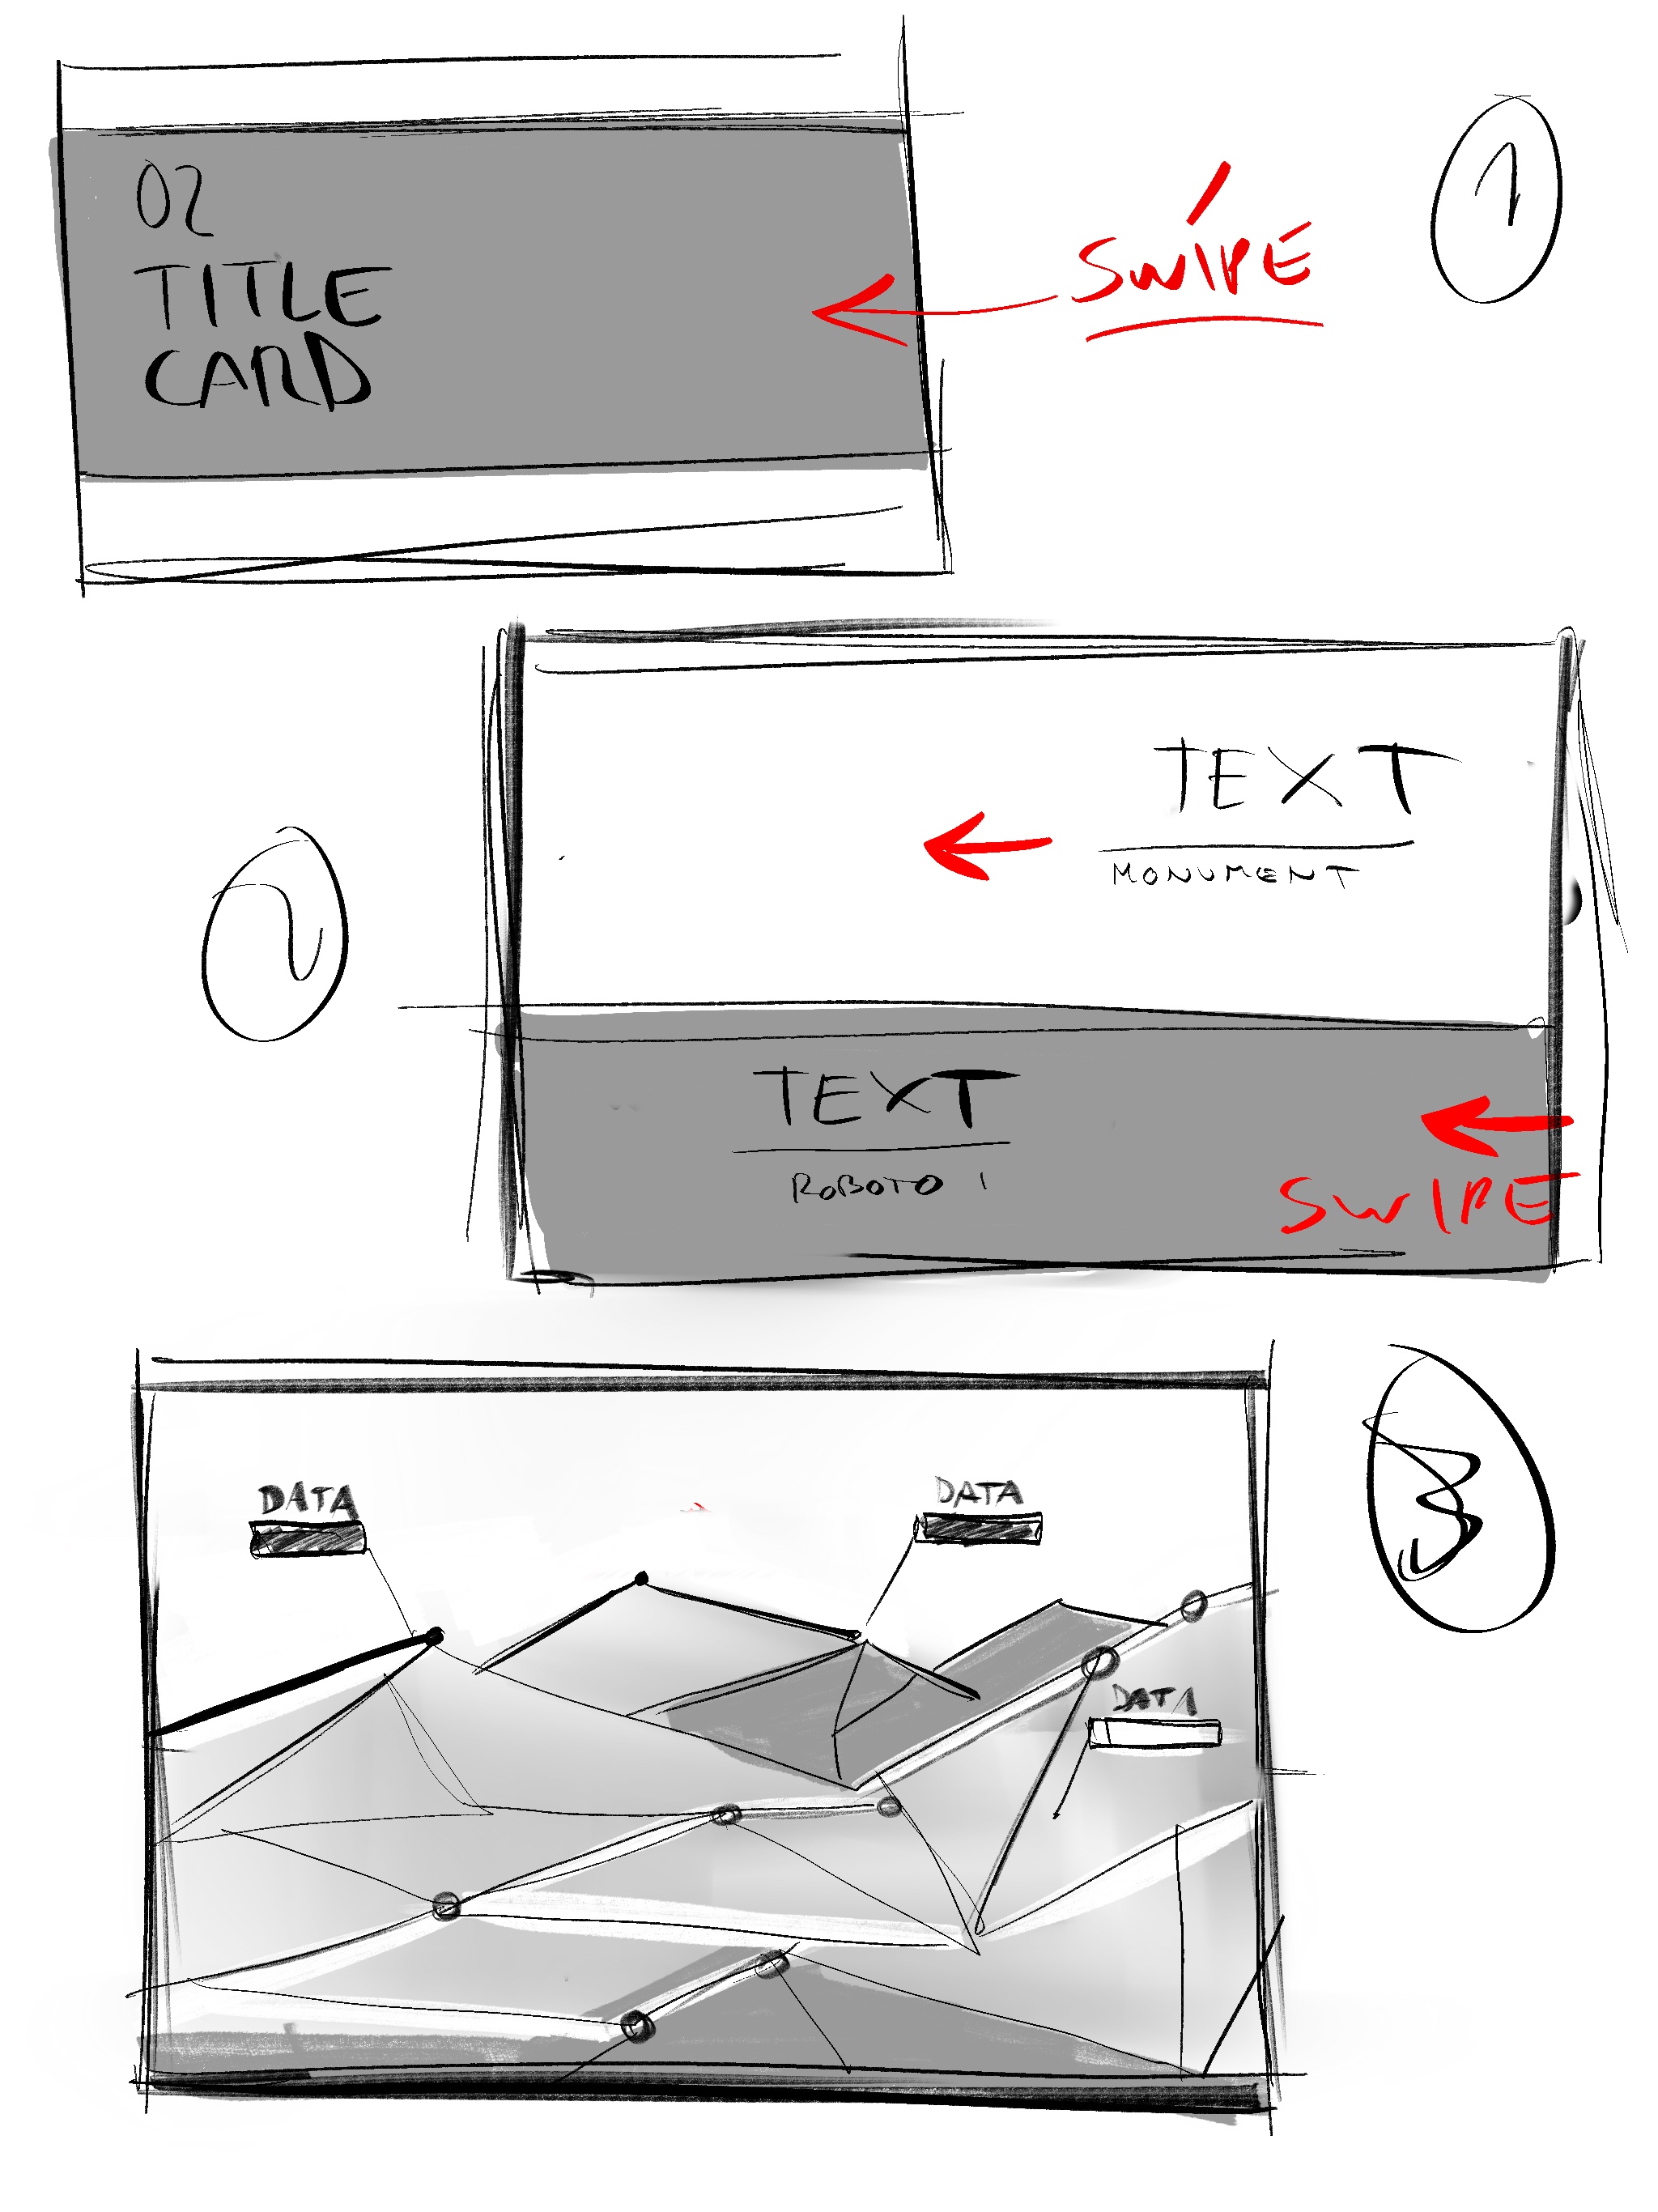 02
TITLE
CARD
SWIPE
1
TEXT
MONUMENT
2
TEXT
ROBOTO
SWIPE
3
DATA
DATA
DATA